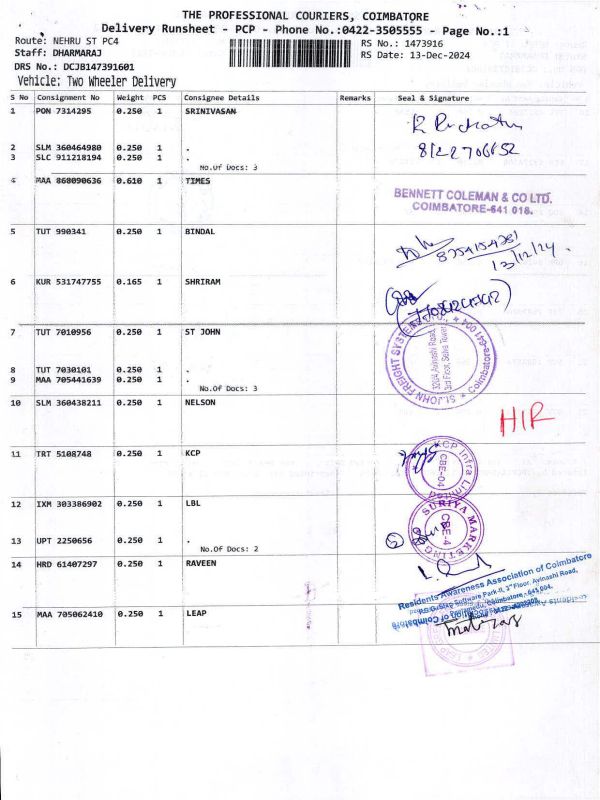 THE PROFESSIONAL COURIERS, COIMBATORE
Delivery Runsheet - PCP - Phone No.:0422-3505555 - Page No.:1
Route: NEHRU ST PC4
RS No.: 1473916
Staff: DHARMARAJ
RS Date: 13-Dec-2024
DRS No.: DCJB147391601
Vehicle: Two Wheeler Delivery
S No Consignment No Weight PCS Consignee Details Remarks Seal & Signature
1 PON 7314295 0.250 1 SRINIVASAN
2 SLM 360464980 0.250 1 .
3 SLC 911218194 0.250 1 .
No.Of Docs: 3
4 MAA 868090636 0.610 1 TIMES
BENNETT COLEMAN & CO LTD.
COIMBATORE-641 018.
5 TUT 990341 0.250 1 BINDAL
13/12/24.
6 KUR 531747755 0.165 1 SHRIRAM
7 TUT 7010956 0.250 1 ST JOHN
ST. JOHN FREIGHT SYSTEMS
Avinashi Road,
3rd Floor,
Coimbatore-641 004
8 TUT 7030101 0.250 1 .
9 MAA 705441639 0.250 1 .
No.Of Docs: 3
10 SLM 360438211 0.250 1 NELSON
HIR
11 TRT 5108748 0.250 1 KCP
KCP Infra Limited
CBE-04
12 IXM 303386902 0.250 1 LBL
SURIYA MARKETING
CBE-4
13 UPT 2250656 0.250 1 .
No.Of Docs: 2
14 HRD 61407297 0.250 1 RAVEEN
Residents Awareness Association of Coimbatore
15 MAA 705062410 0.250 1 LEAP